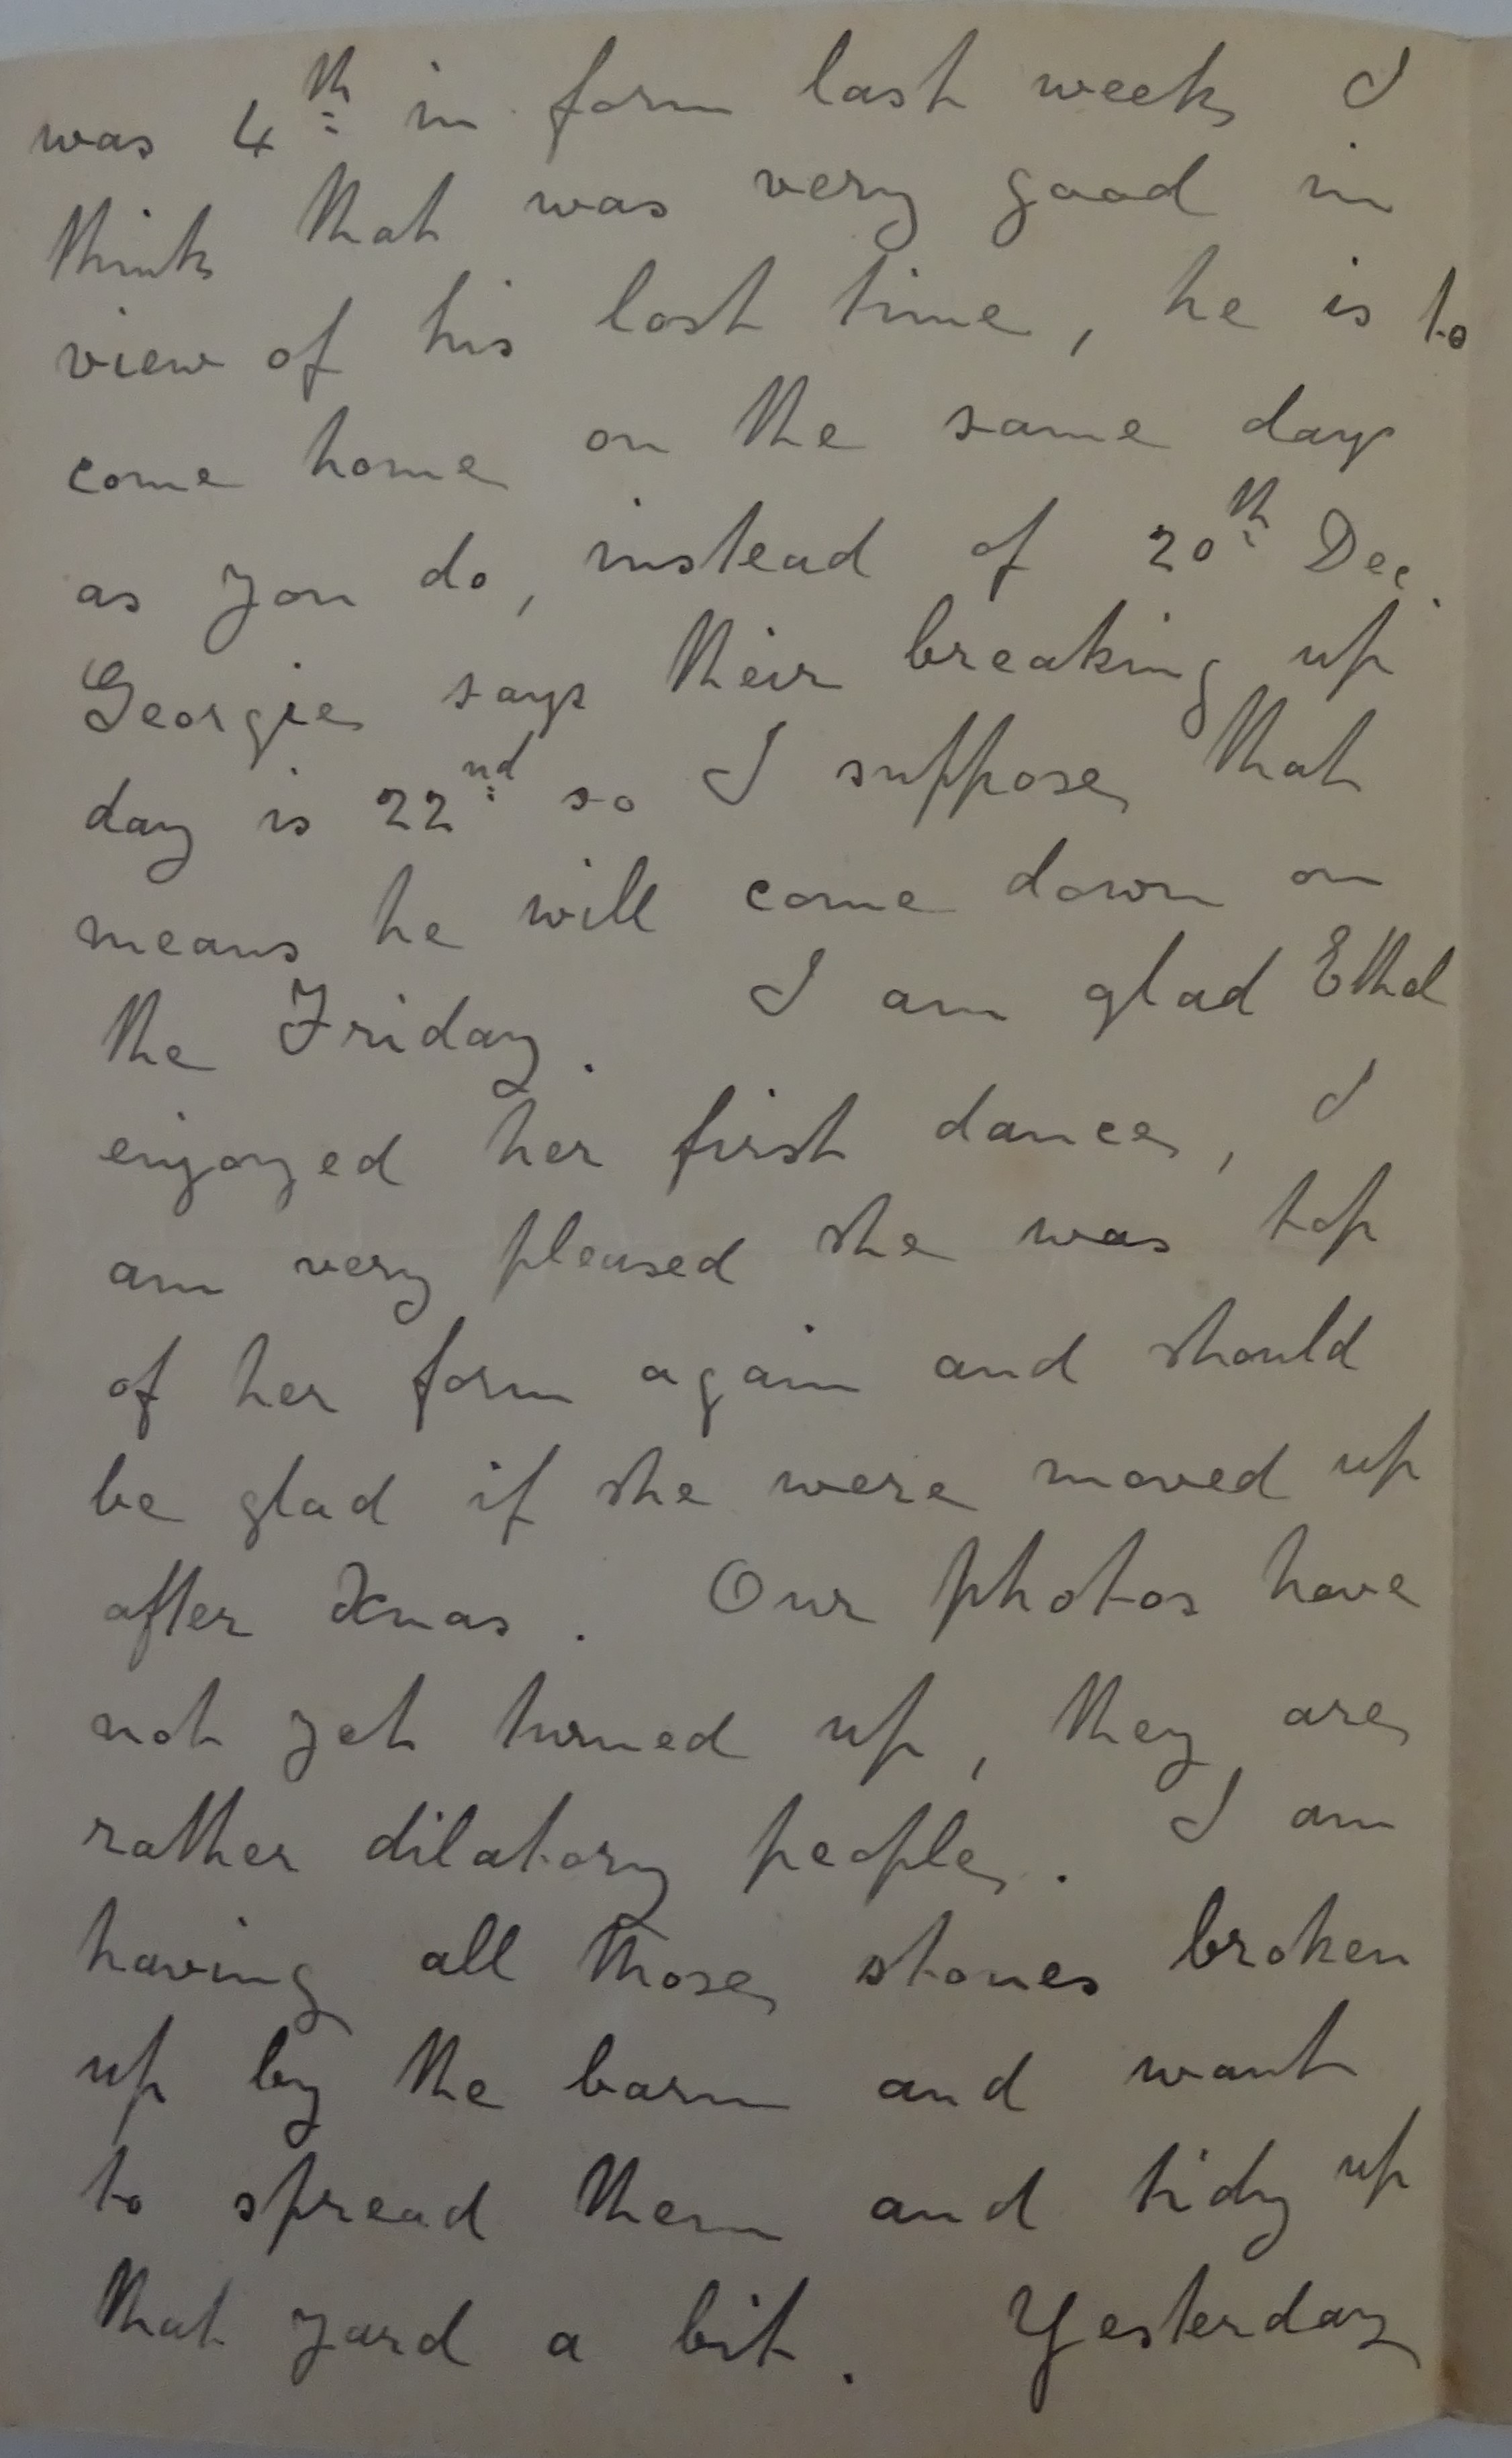 was 4th in form last week I
think that was very good in
view of his lost time, he is to
come home on the same day
as you do, instead of 20th Dec.
Georgie says their breaking up
day is 22nd so I suppose that
means he will come down on
the Friday. I am glad Ethel
enjoyed her first dance, I
am very pleased she was top
of her form again and should
be glad if she were moved up
after Xmas. Our photos have
not yet turned up, they are
rather dilatory people. I am
having all those stones broken
up by the barn and want
to spread them and tidy up
that yard a bit. Yesterday